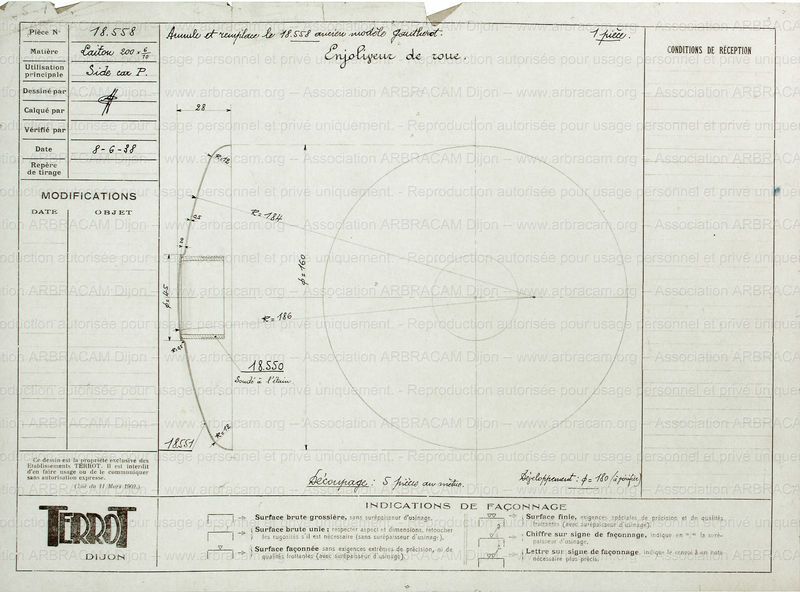 Pièce N° 18.558
Matière Laiton 200 × 6/10
Utilisation principale Side car P.
Dessiné par
Calqué par
Vérifié par
Date 8-6-38
Repère de tirage
MODIFICATIONS
DATE OBJET
Annule et remplace le 18.558 ancien modèle Gautherot.
1 pièce.
Enjoliveur de roue.
CONDITIONS DE RÉCEPTION
28
R=12
R=184
φ=160
φ=45
R=186
18.550
Soudé à l'étain
R=12
18551
Découpage : 5 pièces au mètre.
Développement : φ=180 (à vérifier)
Ce dessin est la propriété exclusive des
Etablissements TERROT. Il est interdit
d'en faire usage ou de le communiquer
sans autorisation expresse.
(Loi du 11 Mars 1902.)
TERROT
DIJON
INDICATIONS DE FAÇONNAGE
Surface brute grossière, sans surépaisseur d'usinage.
Surface brute unie : respecter aspect et dimensions, retoucher
les rugosités s'il est nécessaire (sans surépaisseur d'usinage).
Surface façonnée sans exigences extrêmes de précision, ni de
qualités frottantes (avec surépaisseur d'usinage).
Surface finie, exigences spéciales de précision et de qualités
frottantes (avec surépaisseur d'usinage).
Chiffre sur signe de façonnage, indique en m/m la suré-
paisseur d'usinage.
Lettre sur signe de façonnage, indique le renvoi à un nota
nécessaire plus précis.
Reproduction autorisée pour usage personnel et privé uniquement. – www.arbracam.org – Association ARBRACAM Dijon